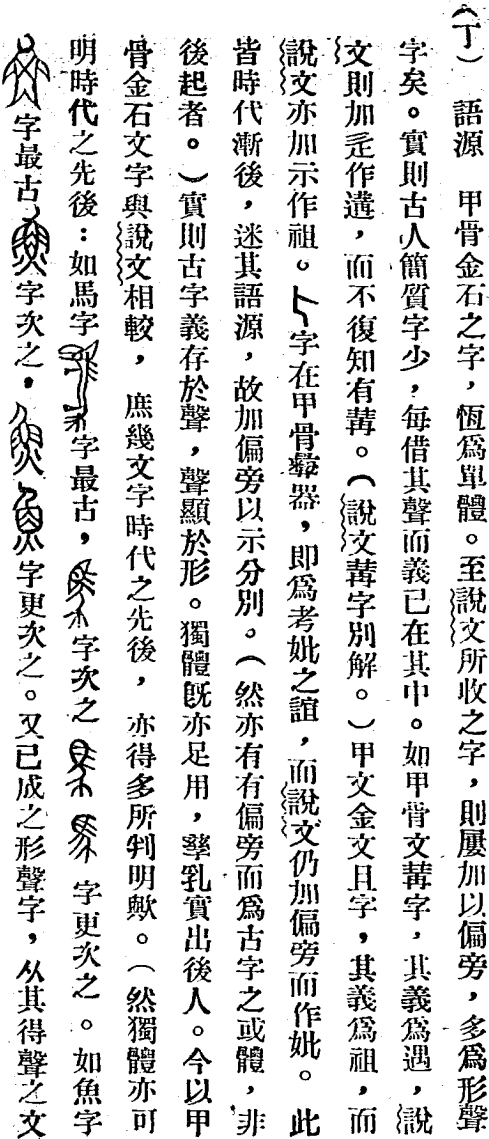 (丁)　語源　甲骨金石之字，恆爲單體。至說文所收之字，則屢加以偏旁，多爲形聲
字矣。實則古人簡質字少，每借其聲而義已在其中。如甲骨文冓字，其義爲遇，說
文則加辵作遘，而不復知有冓。(說文冓字別解。)甲文金文且字，其義爲祖，而
說文亦加示作祖。字在甲骨彜器，即爲考妣之誼，而說文仍加偏旁而作妣。此
皆時代漸後，迷其語源，故加偏旁以示分別。(然亦有有偏旁而爲古字之或體，非
後起者。)實則古字義存於聲，聲顯於形。獨體旣亦足用，孳乳實出後人。今以甲
骨金石文字與說文相較，庶幾文字時代之先後，亦得多所判明歟。(然獨體亦可
明時代之先後：如馬字字最古，字次之字更次之。如魚字
字最古字次之，字更次之。又已成之形聲字，从其得聲之文